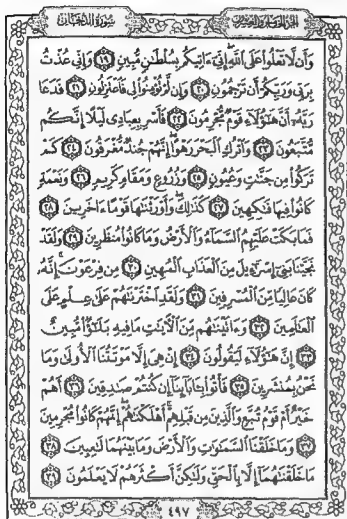 سورة الدخان
الجزء الخامس والعشرون
وَأَن لَّا تَعْلُوا۟ عَلَى ٱللَّهِ إِنِّىٓ ءَاتِيكُم بِسُلْطَـٰنٍ مُّبِينٍ ١٩ وَإِنِّى عُذْتُ
بِرَبِّى وَرَبِّكُمْ أَن تَرْجُمُونِ ٢٠ وَإِن لَّمْ تُؤْمِنُوا۟ لِى فَٱعْتَزِلُونِ ٢١ فَدَعَا
رَبَّهُۥٓ أَنَّ هَـٰٓؤُلَآءِ قَوْمٌ مُّجْرِمُونَ ٢٢ فَأَسْرِ بِعِبَادِى لَيْلًا إِنَّكُم
مُّتَّبَعُونَ ٢٣ وَٱتْرُكِ ٱلْبَحْرَ رَهْوًا إِنَّهُمْ جُندٌ مُّغْرَقُونَ ٢٤ كَمْ
تَرَكُوا۟ مِن جَنَّـٰتٍ وَعُيُونٍ ٢٥ وَزُرُوعٍ وَمَقَامٍ كَرِيمٍ ٢٦ وَنَعْمَةٍ
كَانُوا۟ فِيهَا فَـٰكِهِينَ ٢٧ كَذَٰلِكَ وَأَوْرَثْنَـٰهَا قَوْمًا ءَاخَرِينَ ٢٨
فَمَا بَكَتْ عَلَيْهِمُ ٱلسَّمَآءُ وَٱلْأَرْضُ وَمَا كَانُوا۟ مُنظَرِينَ ٢٩ وَلَقَدْ
نَجَّيْنَا بَنِىٓ إِسْرَٰٓءِيلَ مِنَ ٱلْعَذَابِ ٱلْمُهِينِ ٣٠ مِن فِرْعَوْنَ إِنَّهُۥ
كَانَ عَالِيًا مِّنَ ٱلْمُسْرِفِينَ ٣١ وَلَقَدِ ٱخْتَرْنَـٰهُمْ عَلَىٰ عِلْمٍ عَلَى
ٱلْعَـٰلَمِينَ ٣٢ وَءَاتَيْنَـٰهُم مِّنَ ٱلْـَٔايَـٰتِ مَا فِيهِ بَلَـٰٓؤٌا۟ مُّبِينٌ
٣٣ إِنَّ هَـٰٓؤُلَآءِ لَيَقُولُونَ ٣٤ إِنْ هِىَ إِلَّا مَوْتَتُنَا ٱلْأُولَىٰ وَمَا
نَحْنُ بِمُنشَرِينَ ٣٥ فَأْتُوا۟ بِـَٔابَآئِنَآ إِن كُنتُمْ صَـٰدِقِينَ ٣٦ أَهُمْ
خَيْرٌ أَمْ قَوْمُ تُبَّعٍ وَٱلَّذِينَ مِن قَبْلِهِمْ أَهْلَكْنَـٰهُمْ إِنَّهُمْ كَانُوا۟ مُجْرِمِينَ
٣٧ وَمَا خَلَقْنَا ٱلسَّمَـٰوَٰتِ وَٱلْأَرْضَ وَمَا بَيْنَهُمَا لَـٰعِبِينَ ٣٨
مَا خَلَقْنَـٰهُمَآ إِلَّا بِٱلْحَقِّ وَلَـٰكِنَّ أَكْثَرَهُمْ لَا يَعْلَمُونَ ٣٩
٤٩٧